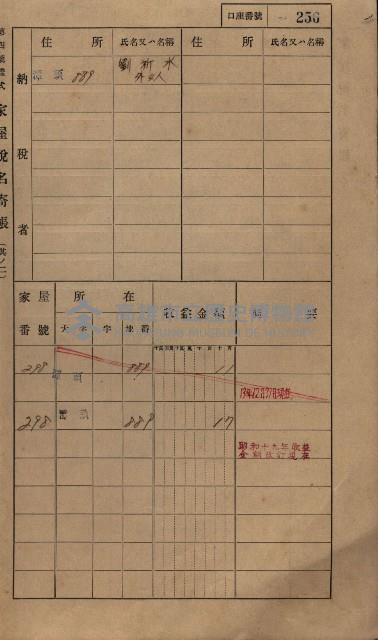 口座番號 256
第四號樣式 家屋稅名寄帳(其ノ二)
住所 氏名又ハ名稱 住所 氏名又ハ名稱
納稅者
889 劉新水
外四人
家屋番號 所在 收益金額 摘要
大字 字 地番
高雄市立歷史博物館
KAOHSIUNG MUSEUM OF HISTORY
298 889 11
298 889 17
昭和十九年收益
金額改訂現在